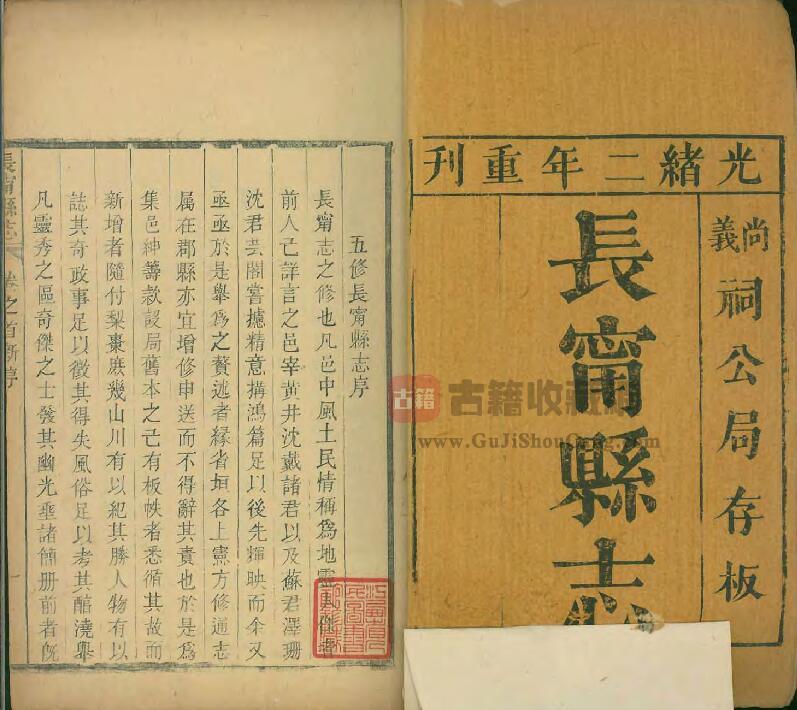 光緒二年重刊
尚義祠公局存板
長甯縣志
五修長甯縣志序
長甯志之修也凡邑中風土民情稱爲地靈人傑者
前人已詳言之邑宰黃井沈戴諸君以及蘇君澤珊
沈君芸閣嘗攄精意搆鴻篇足以後先輝映而余又
亟亟於是舉爲之贅述者緣省垣各上憲方修通志
属在郡縣亦宜增修申送而不得辭其責也於是爲
集邑紳籌款設局舊本之已有板帙者悉循其故而
新增者隨付梨棗庶幾山川有以紀其勝人物有以
誌其奇政事足以徵其得失風俗足以考其醕澆舉
凡靈秀之區奇傑之士發其幽光垂諸簡册前者旣
長甯縣志
卷之首新序
一
古籍
古籍收藏
www.GuJiShouCang.com